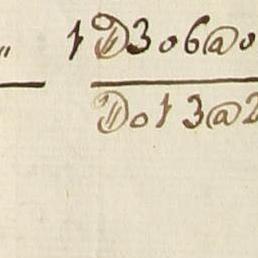 " 1 D 3 0 6 @ 0
D 0 1 3 @ 2